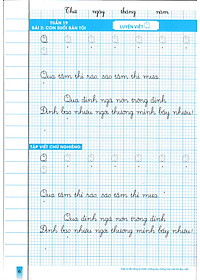 Thứ ngày tháng năm
TUẦN 19
BÀI 2: CON SUỐI BẢN TÔI
LUYỆN VIẾT Q
Q Q Q Q Q Q
Quạ tắm thì ráo, sáo tắm thì mưa.
Qua đình ngả nón trông đình
Đình bao nhiêu ngói thương mình bấy nhiêu!
TẬP VIẾT CHỮ NGHIÊNG:
Q Q Q Q Q Q
Quạ tắm thì ráo, sáo tắm thì mưa.
Qua đình ngả nón trông đình
Đình bao nhiêu ngói thương mình bấy nhiêu!
6